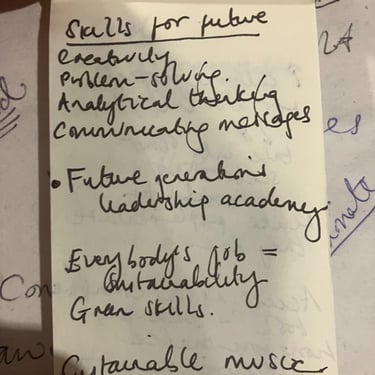 Skills for future
Creativity
Problem-solving.
Analytical thinking
Communicating messages
• Future generations
leadership academy.
Everybody's job =
Sustainability
Green skills.
Sustainable music